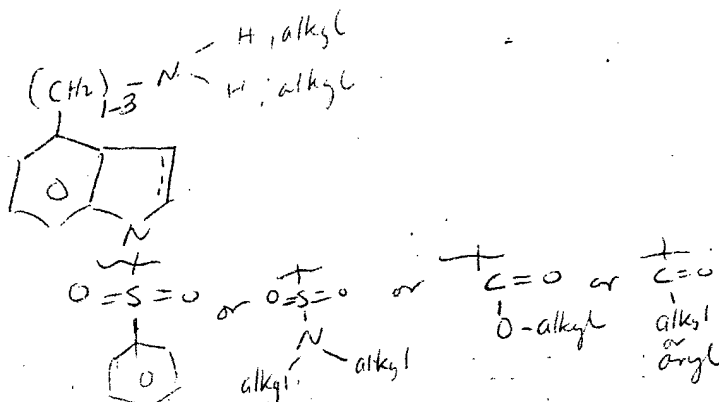 H, alkyl
(CH2)1-3 - N
H, alkyl
N
O=S=O or O=S=O or C=O or C=O
N O-alkyl alkyl
alkyl alkyl or
aryl